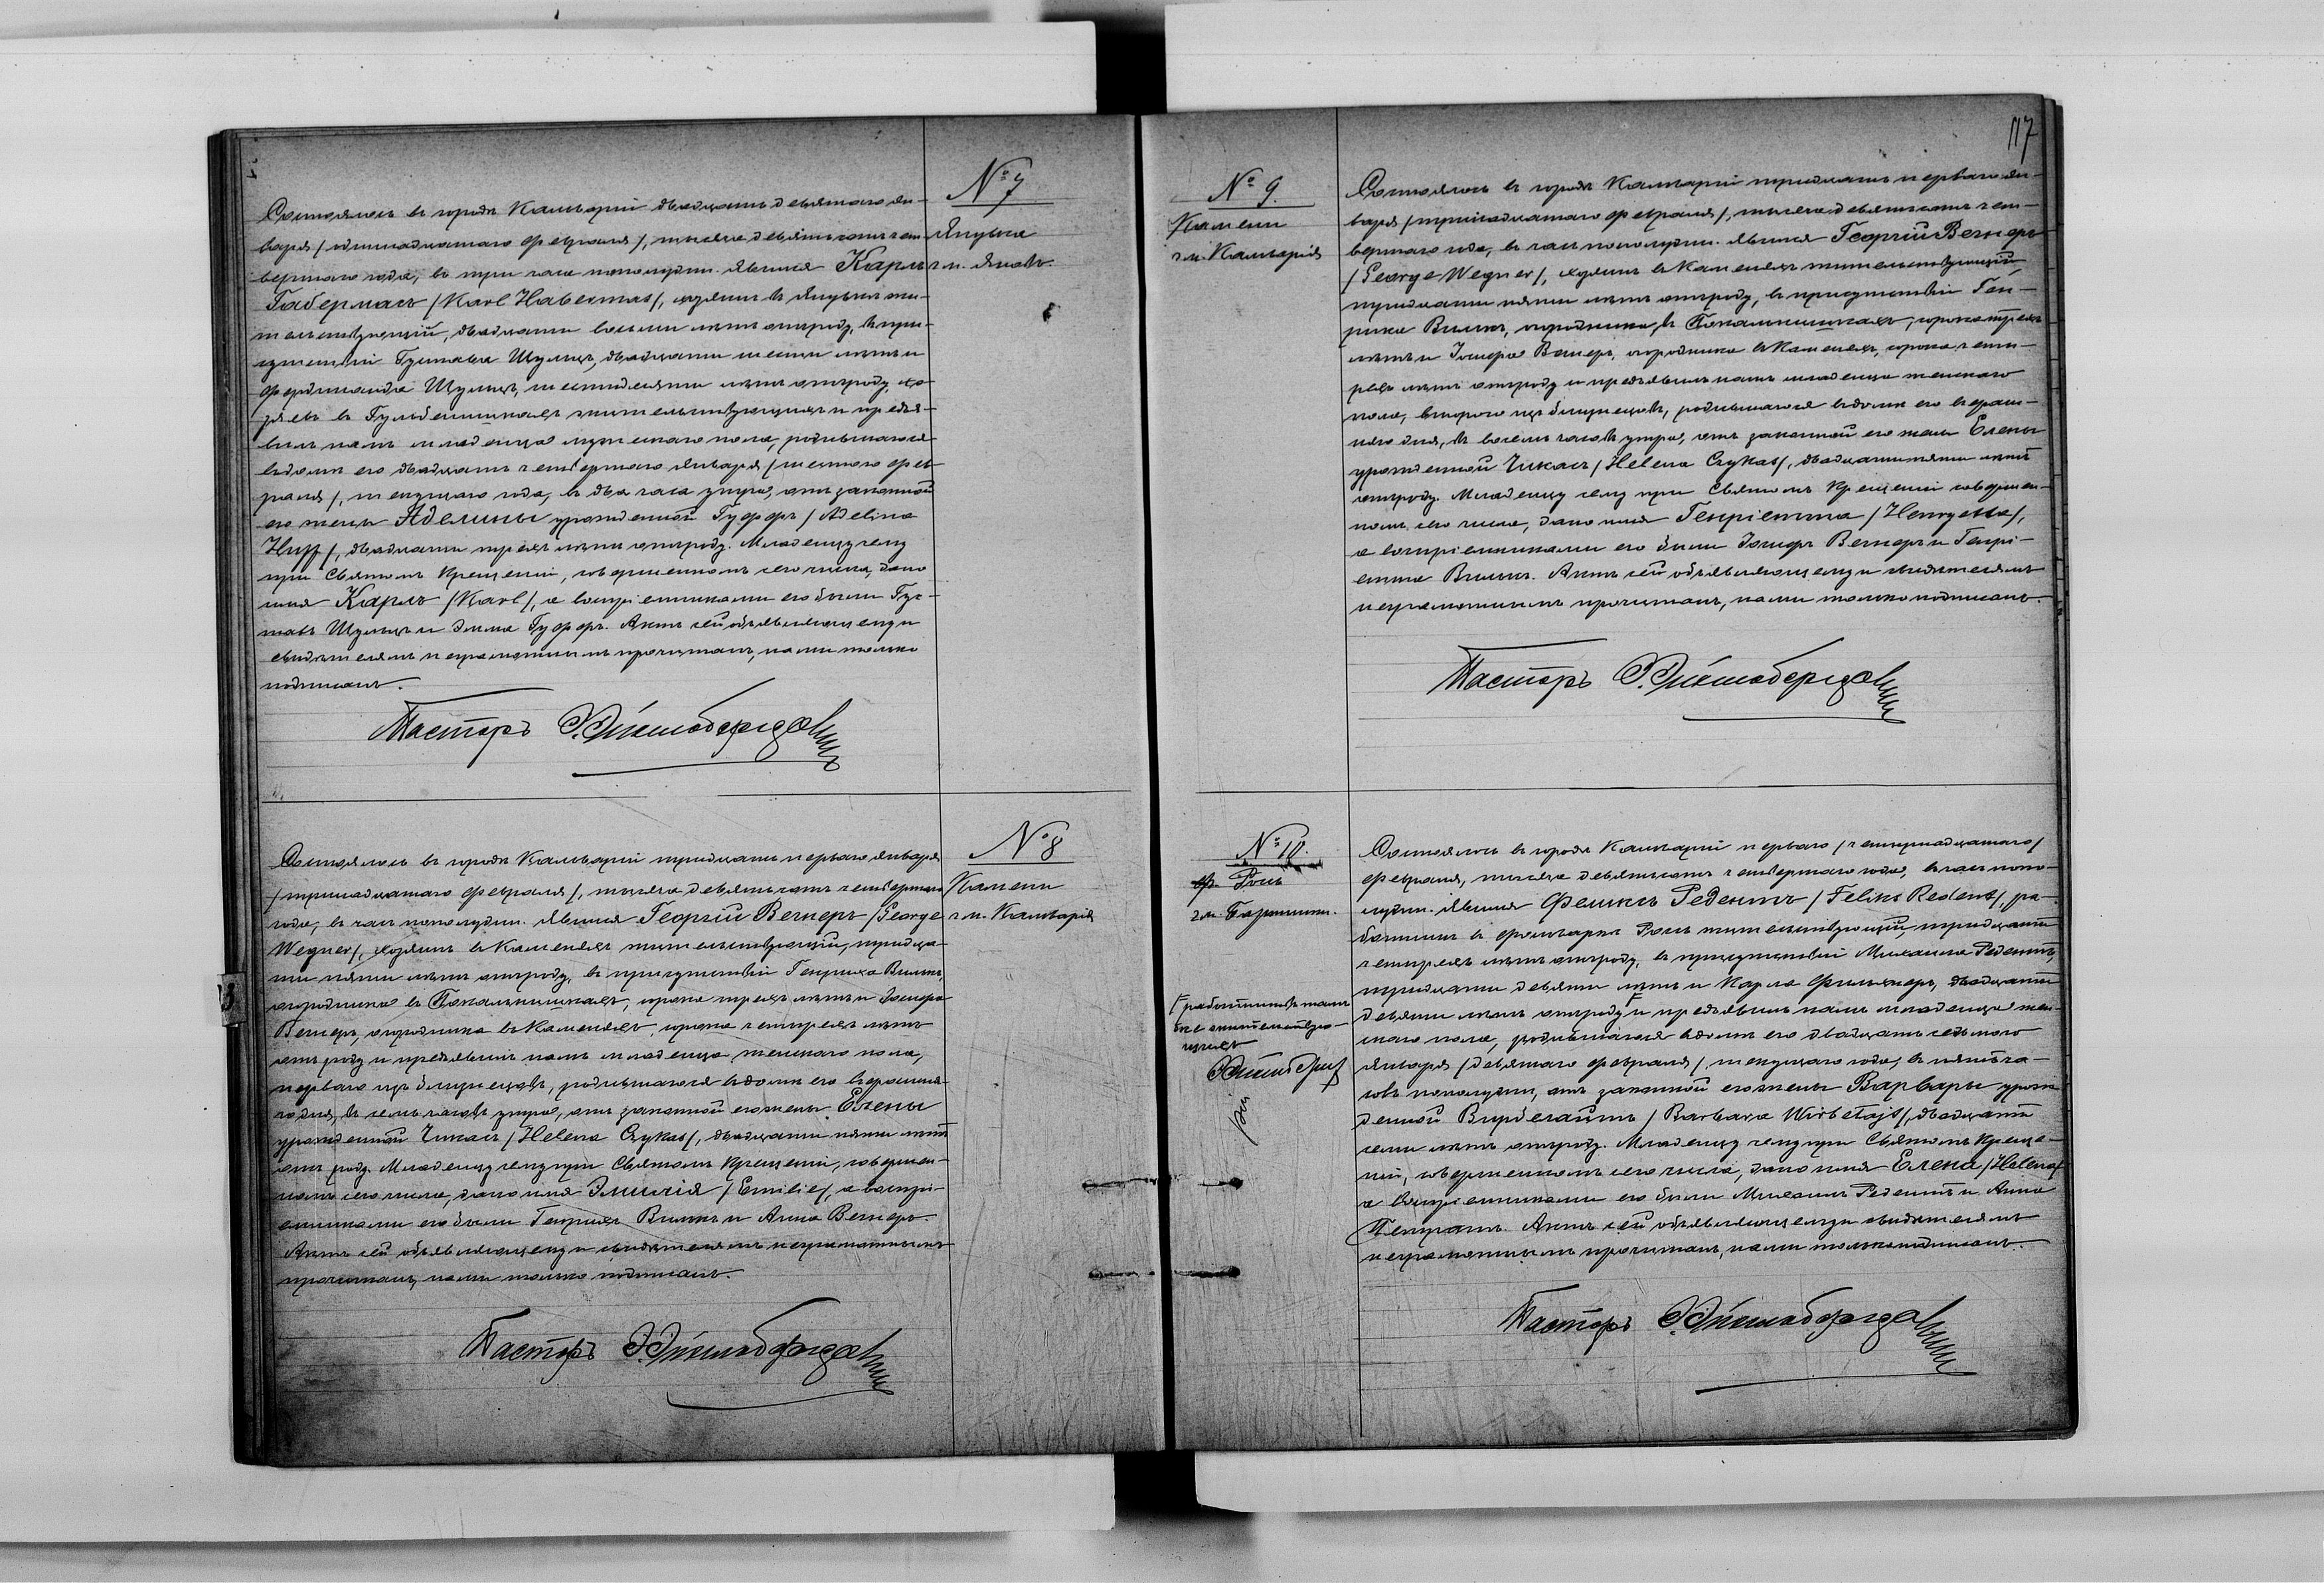 № 7
Янувка
г.м. Яновъ.
Состоялось въ городѣ Кальваріи двадцать девятаго Ян-
варя /одиннадцатаго Февраля/, тысяча девятьсотъ чет-
вертаго года, въ три часа пополудни. Явился Карлъ
Габермасъ /Karl Habermas/, хозяинъ въ Янувкѣ жи-
тельствующій, двадцати восьми лѣтъ отъ роду, въ при-
сутствіи Густава Шульцъ, двадцати шести лѣтъ и
Фердинанда Шульцъ, шестидесяти лѣтъ отъ роду, хо-
зяевъ въ жительствующихъ и предъя-
вилъ намъ младенца мужескаго пола, родившагося
въ домѣ его двадцать четвертаго Января /шестого Фев-
раля/, текущаго года, въ два часа утра, отъ законной
его жены Аделины урожденной Гуффъ /Adelina
Huff/, двадцати трехъ лѣтъ отъ роду. Младенцу сему
при Святомъ Крещеніи, совершенномъ сего числа, дано
имя Карлъ /Karl/, а воспріемниками его были Гус-
тавъ Шульцъ и Эмма Гуффъ. Актъ сей объявляющему и
свидѣтелямъ неграмотнымъ прочитанъ, нами только
подписанъ.
Пасторъ
№ 8
Камени
г.м. Кальварія
Состоялось въ городѣ Кальваріи тридцать перваго Января
/тринадцатаго Февраля/, тысяча девятьсотъ четвертаго
года, въ часъ пополудни. Явился Георгій Вегнеръ /George
Wegner/, хозяинъ въ Каменяхъ жительствующій, тридца-
ти пяти лѣтъ отъ роду, въ присутствіи Генриха Вилкъ,
огородника въ Покальнишкахъ, сорока трехъ лѣтъ и Іосифа
Вегнеръ, огородника въ Каменяхъ, сорока четырехъ лѣтъ
отъ роду и предъявилъ намъ младенца женскаго пола,
перваго изъ близнецовъ, родившагося въ домѣ его вчераш-
няго дня, въ семь часовъ утра, отъ законной его жены Елены
урожденной Чикасъ /Helena Czykas/, двадцати пяти лѣтъ
отъ роду. Младенцу сему при Святомъ Крещеніи, совершен-
номъ сего числа, дано имя Эмилія /Emilie/, а воспрі-
емниками его были Генрихъ Вилкъ и Анна Вегнеръ.
Актъ сей объявляющему и свидѣтелямъ неграмотнымъ
прочитанъ, нами только подписанъ.
Пасторъ
117
№ 9.
Камени
г.м. Кальварія
Состоялось въ городѣ Кальваріи тридцать перваго Ян-
варя /тринадцатаго Февраля/, тысяча девятьсотъ чет-
вертаго года, въ часъ пополудни. Явился Георгій Вегнеръ
/George Wegner/, хозяинъ въ Каменяхъ жительствующій,
тридцати пяти лѣтъ отъ роду, въ присутствіи Ген-
риха Вилкъ, огородника въ Покальнишкахъ, сорока трехъ
лѣтъ и Іосифа Вегнеръ, огородника въ Каменяхъ, сорока четы-
рехъ лѣтъ отъ роду и предъявилъ намъ младенца женскаго
пола, второго изъ близнецовъ, родившагося въ домѣ его вчераш-
няго дня, въ восемь часовъ утра, отъ законной его жены Елены
урожденной Чикасъ /Helena Czykas/, двадцати пяти лѣтъ
отъ роду. Младенцу сему при Святомъ Крещеніи совершен-
номъ сего числа, дано имя Генріетта /Henryetta/,
а воспріемниками его были Іосифъ Вегнеръ и Генрі-
етта Вилкъ. Актъ сей объявляющему и свидѣтелямъ
неграмотнымъ прочитанъ, нами только подписанъ.
Пасторъ
№ 10.
ф. Рось
г.м.
Состоялось въ городѣ Кальваріи перваго /четырнадцатаго/
Февраля, тысяча девятьсотъ четвертаго года, въ часъ попо-
лудни. Явился Феликсъ Редентъ /Feliks Redent/, ра-
ботникъ въ фольваркѣ Рось жительствующій, тридцати
четырехъ лѣтъ отъ роду, въ присутствіи Михаила Редентъ,
тридцати девяти лѣтъ и Карла двадцати
девяти лѣтъ отъ роду и предъявилъ намъ младенца жен-
скаго пола, родившагося въ домѣ его двадцать седьмого
Января /девятаго Февраля/, текущаго года, въ пять ча-
совъ пополудни, отъ законной его жены Варвары урож-
денной Вирбелайтъ /Barbara Wirbełajt/, двадцати
семи лѣтъ отъ роду. Младенцу сему при Святомъ Креще-
ніи, совершенномъ сего числа, дано имя Елена /Helena/
а воспріемниками его были Михаилъ Редентъ и Анна
Актъ сей объявляющему и свидѣтелямъ
неграмотнымъ прочитанъ, нами только подписанъ.
работниковъ тамъ
же жительствую-
щихъ
Пасторъ